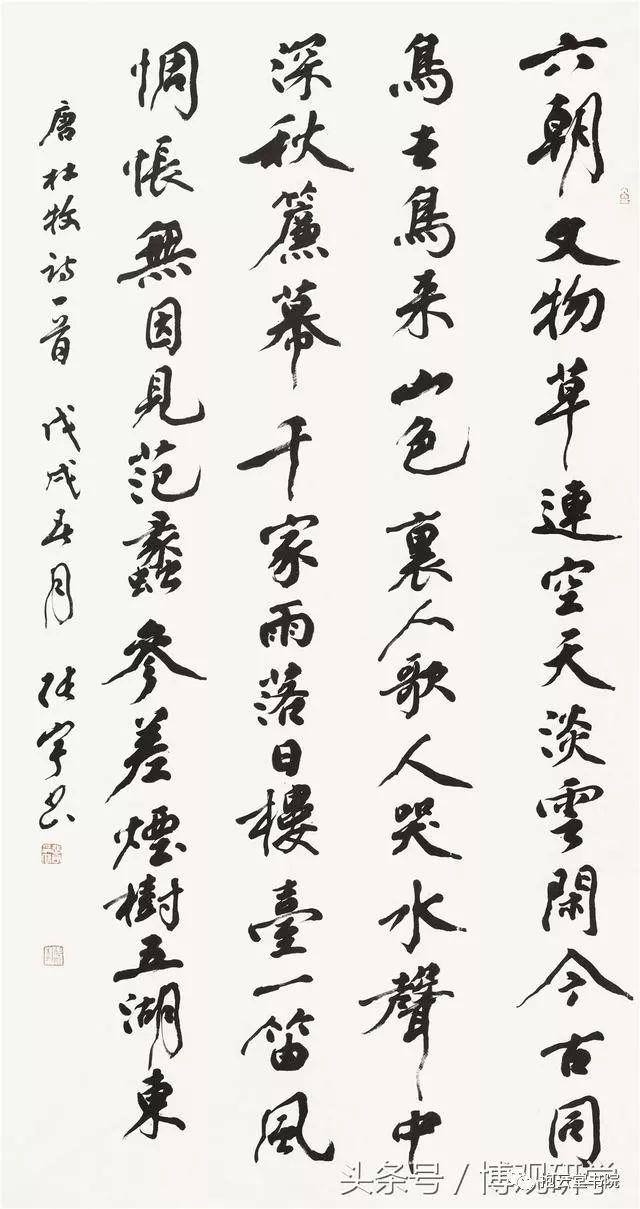 六朝文物草連空天淡雲閑今古同
鳥去鳥来山色裏人歌人哭水聲中
深秋簾幕千家雨落日樓臺一笛風
惆悵無因見范蠡參差煙樹五湖東
唐杜牧诗一首 戊戌春月 張宇书
头条号 / 博观研学
抱云堂书院